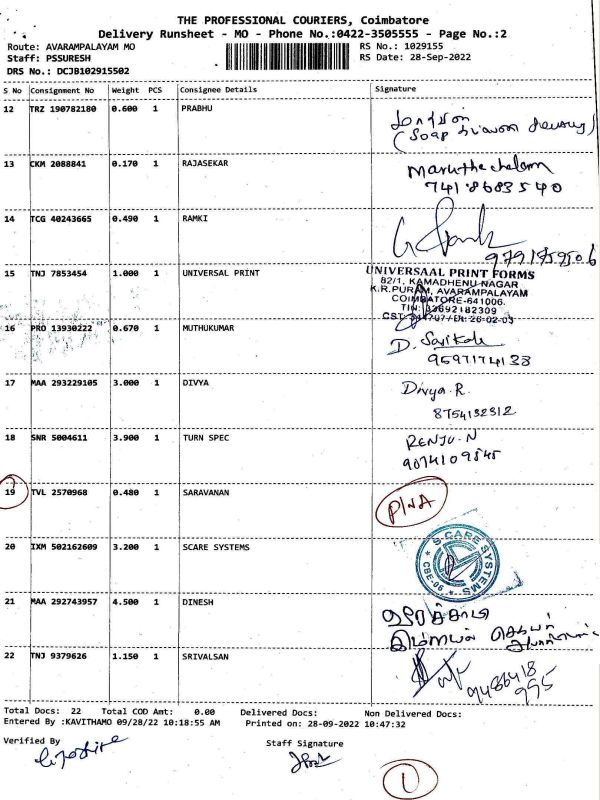 THE PROFESSIONAL COURIERS, Coimbatore
Delivery Runsheet - MO - Phone No.:0422-3505555 - Page No.:2
Route: AVARAMPALAYAM MO
RS No.: 1029155
Staff: PSSURESH
RS Date: 28-Sep-2022
DRS No.: DCJB102915502
S No Consignment No Weight PCS Consignee Details Signature
12 TRZ 190782180 0.600 1 PRABHU
13 CKM 2088841 0.170 1 RAJASEKAR
Maruthachalam
7418683540
14 TCG 40243665 0.490 1 RAMKI
9791959506
15 TNJ 7853454 1.000 1 UNIVERSAL PRINT
UNIVERSAAL PRINT FORMS
82/1, KAMADHENU NAGAR
K.R.PURAM, AVARAMPALAYAM
COIMBATORE-641006.
TIN: 33692182309
16 PRO 13930222 0.670 1 MUTHUKUMAR
D. Sarikala
9597174133
17 MAA 293229105 3.000 1 DIVYA
Divya.R.
8754132312
18 SNR 5004611 3.900 1 TURN SPEC
RENJU.N
9074109545
19 TVL 2570968 0.480 1 SARAVANAN
P/NA
20 IXM 502162609 3.200 1 SCARE SYSTEMS
S-CARE SYSTEMS
CBE-06
21 MAA 292743957 4.500 1 DINESH
22 TNJ 9379626 1.150 1 SRIVALSAN
9486418
995
Total Docs: 22 Total COD Amt: 0.00 Delivered Docs: Non Delivered Docs:
Entered By :KAVITHAMO 09/28/22 10:18:55 AM Printed on: 28-09-2022 10:47:32
Verified By
Staff Signature
1